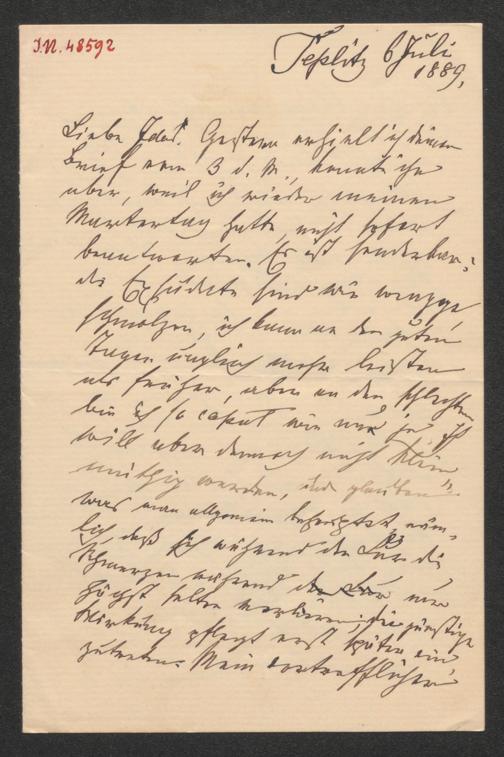 I.N. 48592
Teplitz 6 Juli
1889,
Liebe Ida! Gestern erhielt ich deinen
Brief vom 3 d. M., konnte ihn
aber, weil ich wieder meinen
Martertag hatte, nicht sofort
beantworten. Es ist sonderbar:
die Exsudate sind wie wegge-
schmolzen, ich kann an den guten
Tagen ungleich mehr leisten
als früher, aber an den schlechten
bin ich so caput wie nur je. Ich
will aber dennoch nicht klein-
müthig werden, und glauben
was man allgemein behauptet, näm-
lich daß sich während der Cur die
Schmerzen nur
höchst selten verlieren; die günstige
Wirkung pflegt erst später ein-
zutreten. Mein vortrefflicher